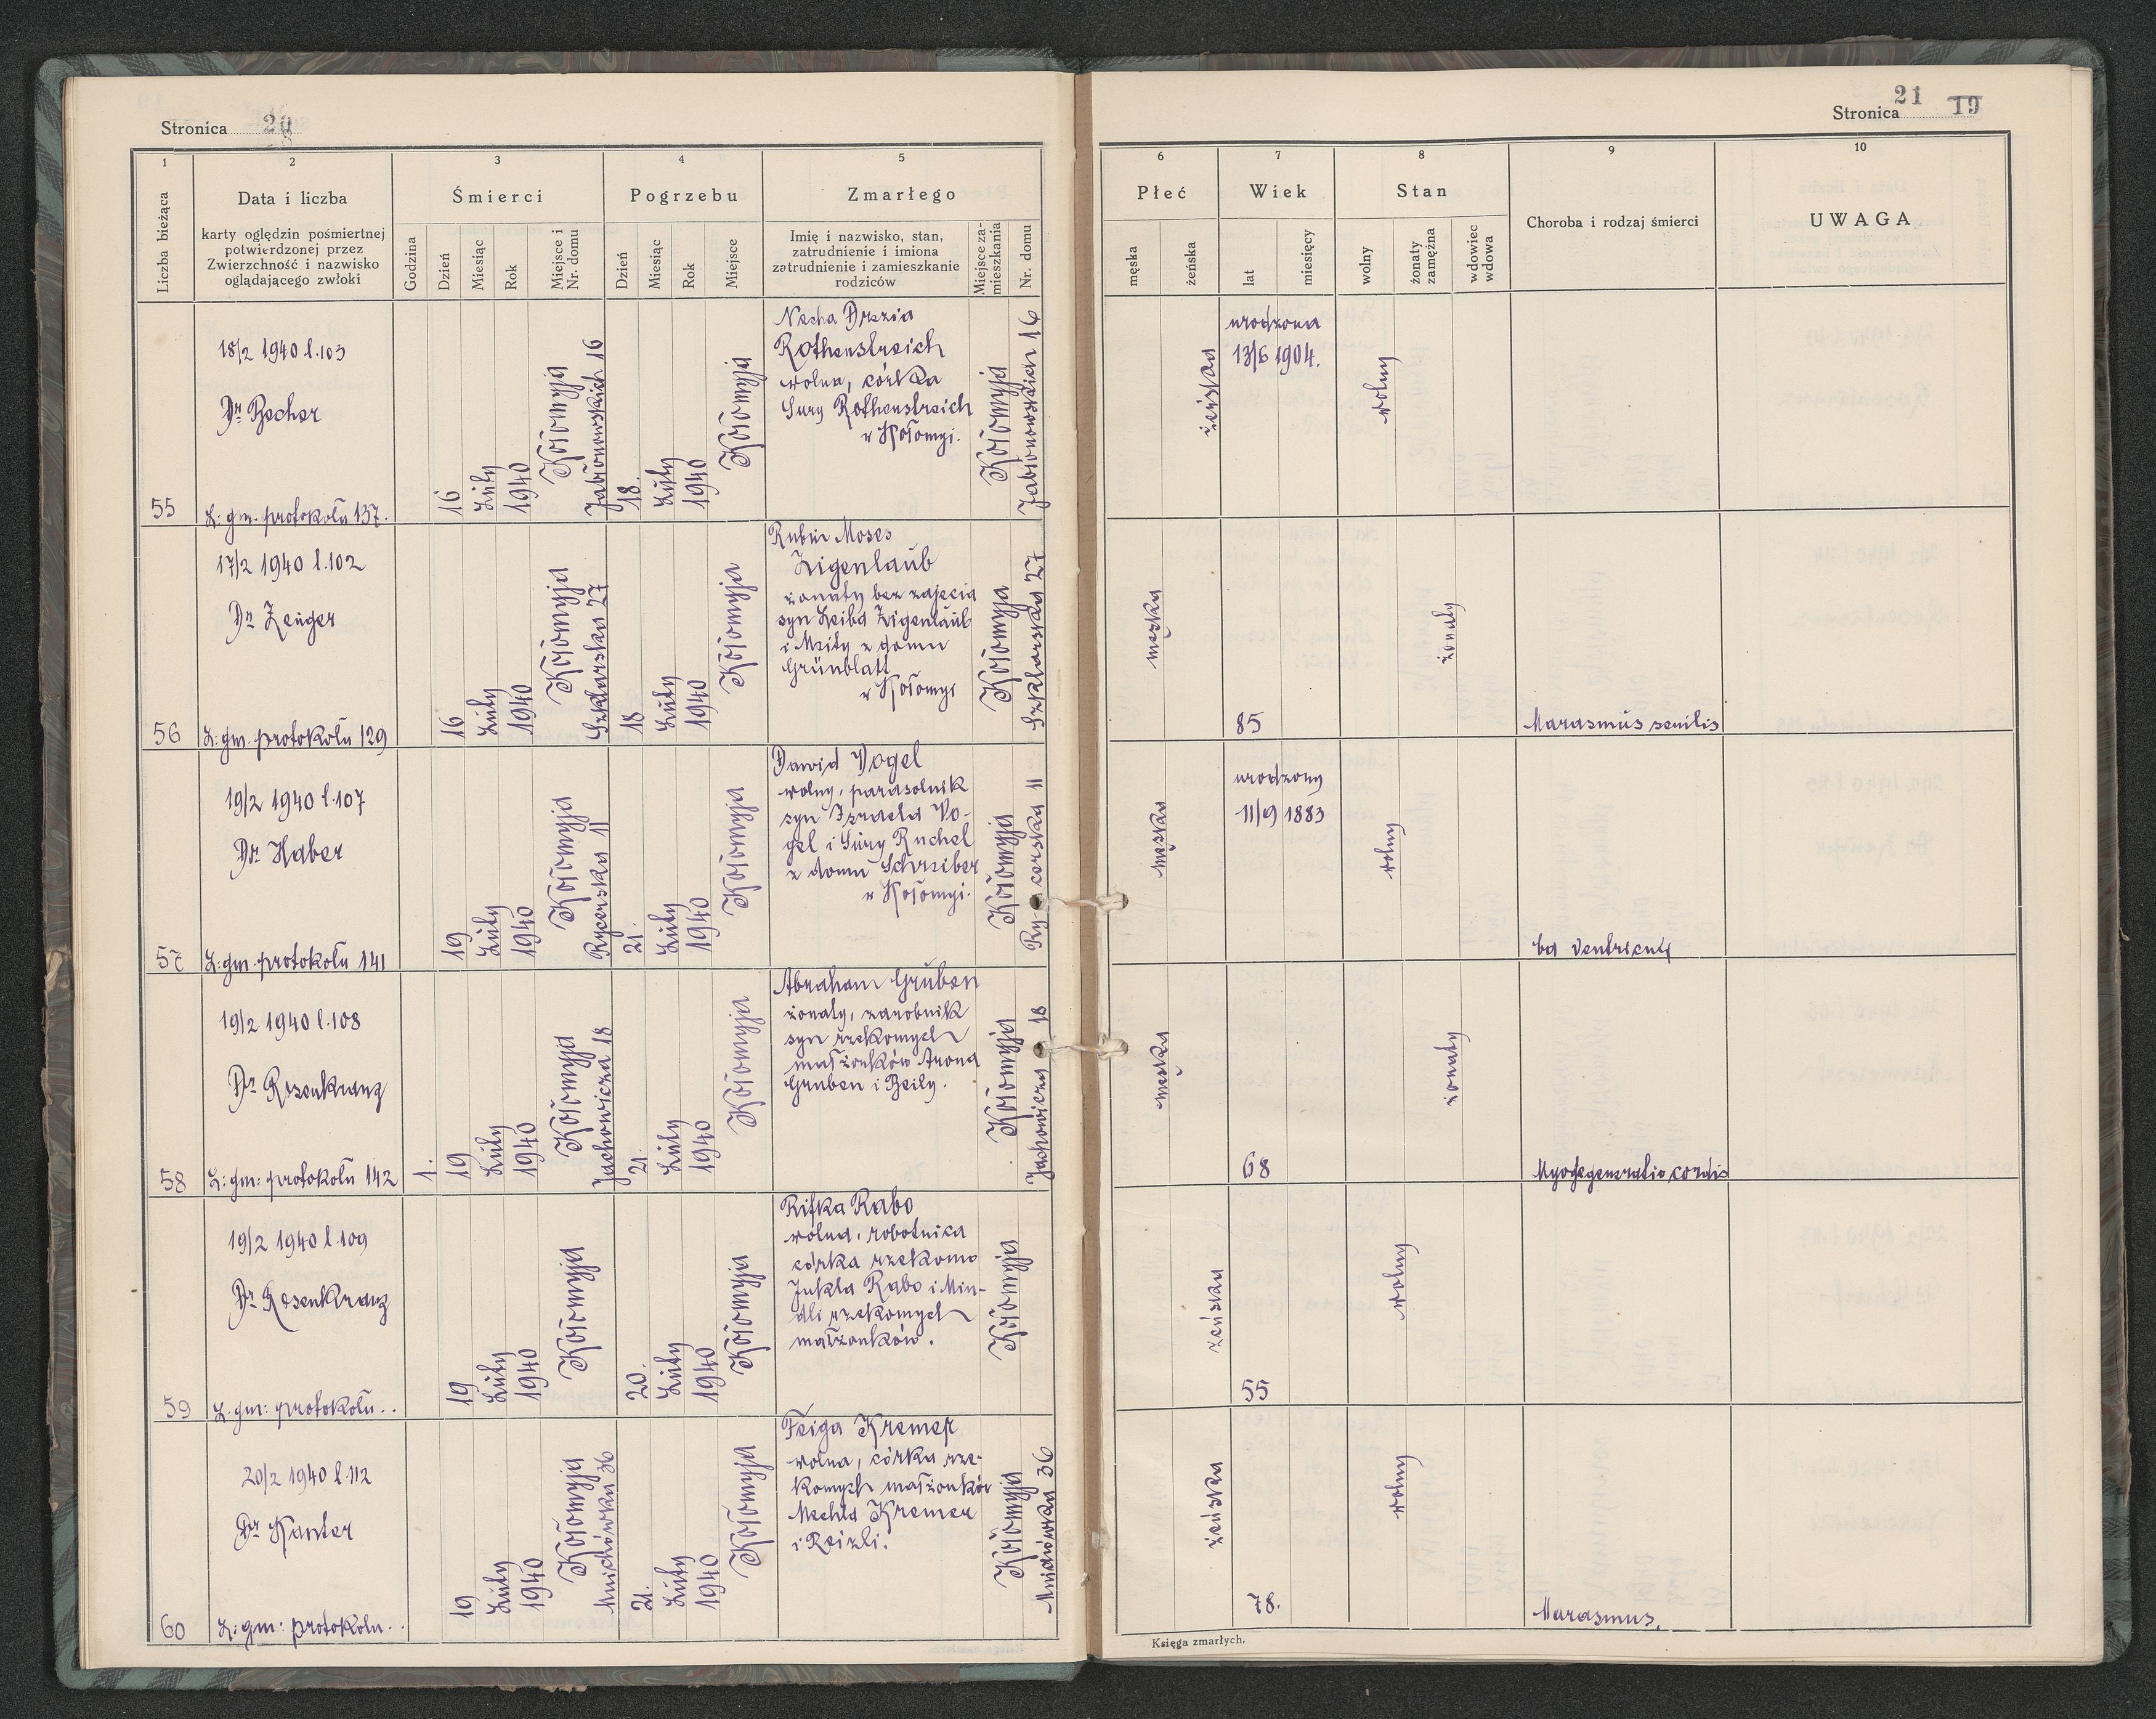 Stronica 20
1
2
3
4
5
Liczba bieżąca
Data i liczba
karty oględzin pośmiertnej
potwierdzonej przez
Zwierzchność i nazwisko
oglądającego zwłoki
Śmierci
Godzina
Dzień
Miesiąc
Rok
Miejsce i
Nr. domu
Pogrzebu
Dzień
Miesiąc
Rok
Miejsce
Zmarłego
Imię i nazwisko, stan,
zatrudnienie i imiona
zatrudnienie i zamieszkanie
rodziców
Miejsce za-
mieszkania
Nr. domu
55
18/2 1940 l. 103
Dr Becher
L: gm. protokołu 137.
16
Luty
1940
Kołomyja
Jabłonowskich 16
18.
Luty
1940
Kołomyja
Necha Drezia
Rothenstreich
wolna, córka
Sury Rothenstreich
w Kołomyi.
Kołomyja
Jabłonowskich 16
56
17/2 1940 l. 102
Dr Zenger
L: gm. protokołu 129
16
Luty
1940
Kołomyja
Szklarska 27
18
Luty
1940
Kołomyja
Rubin Moses
Zigenlaub
żonaty bez zajęcia
syn Leiba Zigenlaub
i Msity z domu
Grünblatt
w Kołomyi
Kołomyja
Szklarska 27
57
19/2 1940 l. 107
Dr Haber
L: gm. protokołu 141
19
Luty
1940
Kołomyja
Rycerska 11
21.
Luty
1940
Kołomyja
Dawid Vogel
wolny, parasolnik
syn Izraela Vo-
gel i Sury Ruchel
z domu Schreiber
w Kołomyi.
Kołomyja
Ry- cerska 11
58
19/2 1940 l. 108
Dr Rosenkranz
L: gm: protokołu 142
1.
19
Luty
1940
Kołomyja
Jachowicza 18
21.
Luty
1940
Kołomyja
Abraham Gruben
żonaty, zarobnik
syn rzekomych
małżonków Arona
Gruben i Beily.
Kołomyja
Jachowicza 18
59
19/2 1940 l. 109
Dr Rosenkranz
L. gm: protokołu..
19
Luty
1940
Kołomyja
20.
Luty
1940
Kołomyja
Rifka Rabo
wolna, robotnica
córka rzekomo
Jukla Rabo i Min-
dli rzekomych
małżonków.
Kołomyja
60
20/2 1940 l. 112
Dr Kanter
L: gm: protokołu..
19
Luty
1940
Kołomyja
Mnichówka 36
21.
Luty
1940
Kołomyja
Feiga Kremer
wolna, córka rze-
komych małżonków
Mechla Kremer
i Reizli.
Kołomyja
Mnichówka 36
Stronica 21 19
6
7
8
9
10
Płeć
męska
żeńska
Wiek
lat
miesięcy
Stan
wolny
żonaty
zamężna
wdowiec
wdowa
Choroba i rodzaj śmierci
UWAGA
żeńska
urodzona
13/6 1904.
wolny
męska
85
żonaty
Marasmus senilis
męska
urodzony
11/9 1883
wolny
ca ventriculi
męska
68
żonaty
Myodegeneratio cordis
żeńska
55
wolny
żeńska
78.
wolny
Marasmus.
Księga zmarłych.